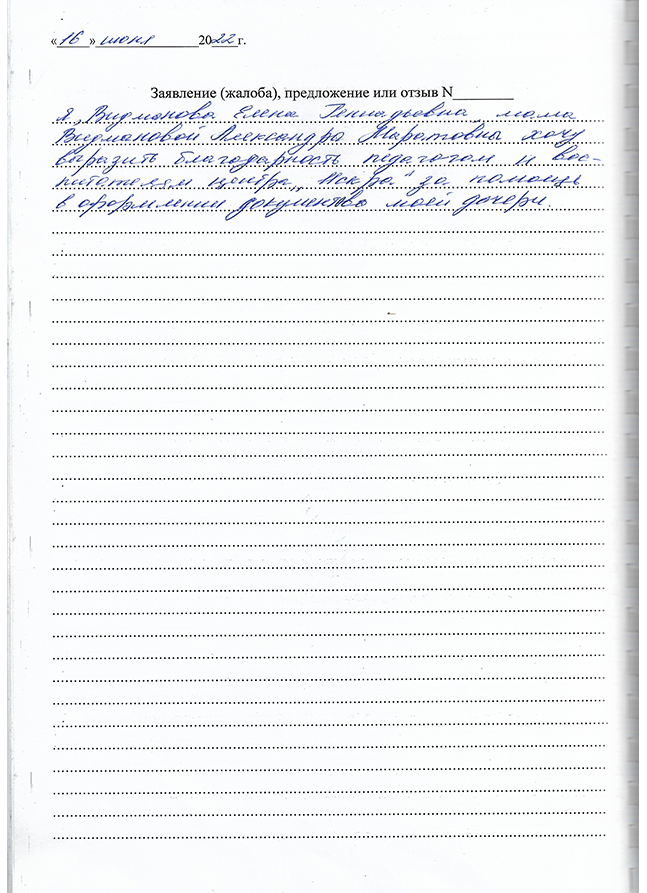 «16» июня 2022 г.
Заявление (жалоба), предложение или отзыв N
Я, Видманова Елена Геннадьевна, мама
Видмановой Александры Маратовны хочу
выразить благодарность педагогом и вос-
питателям центра „Искра" за помощь
в оформлении документов моей дочери.